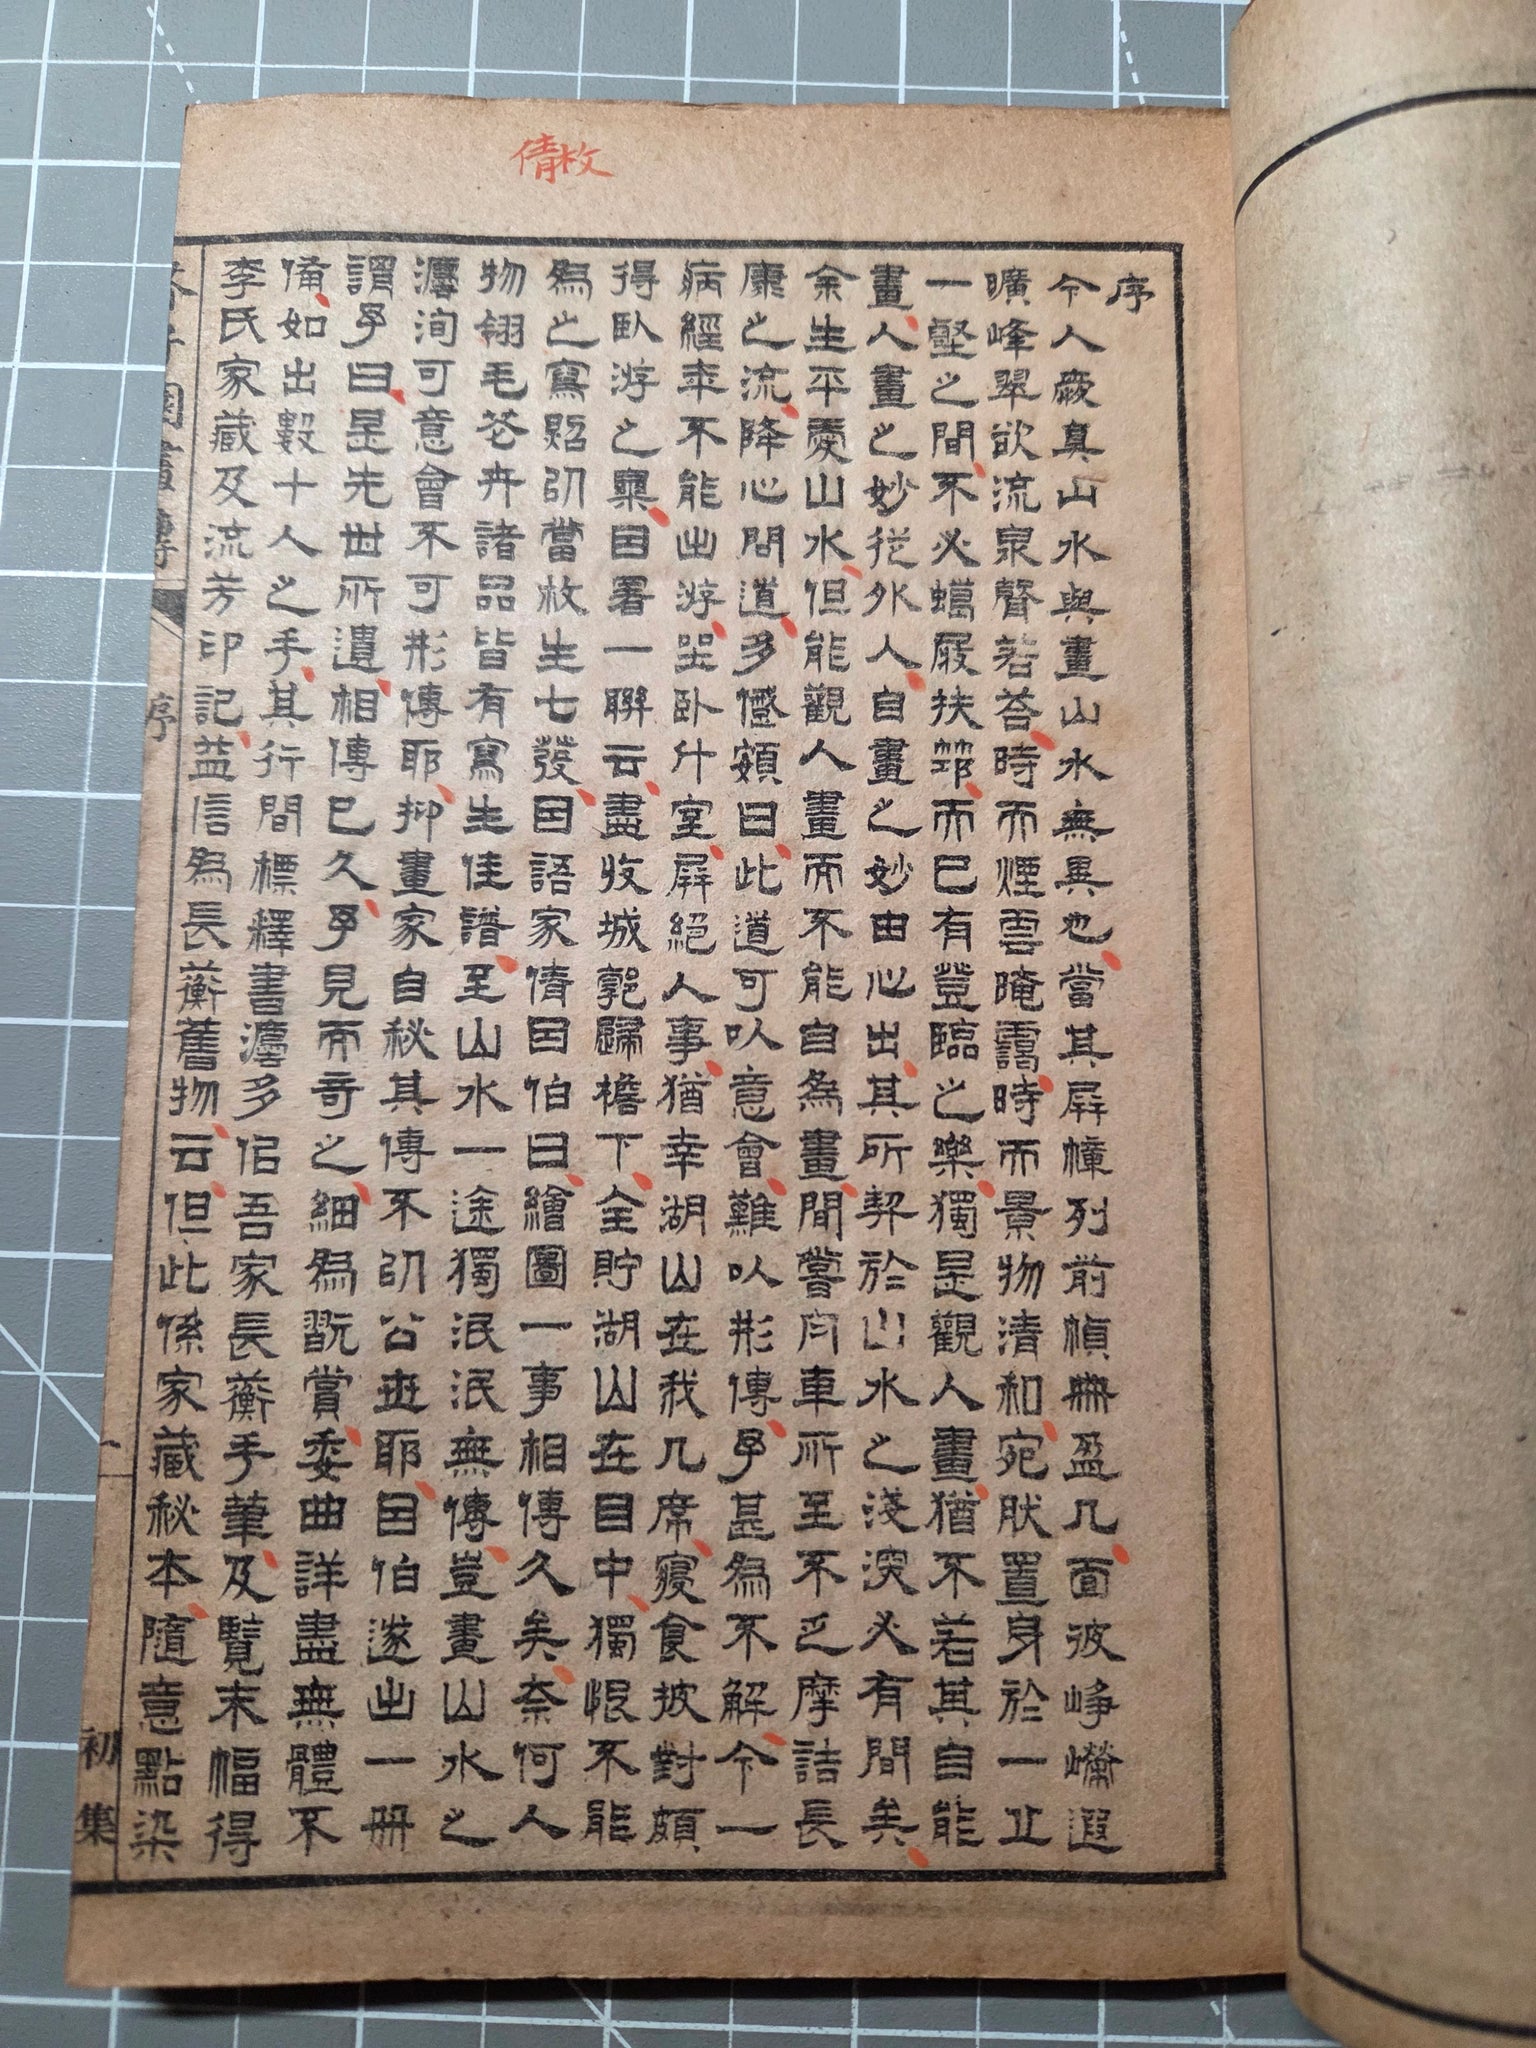 枚倩
序
今人愛真山水與畫山水無異也當其屏幛列前幀冊盈几面彼崢嶸遐
曠峰翠欲流泉聲若荅時而煙雲晻靄時而景物清和宛肰置身於一丘
一壑之間不必蠟屐扶筇而已有登臨之樂獨是觀人畫猶不若其自能
畫人畫之妙從外入自畫之妙由心出其所契於山水之淺深必有間矣
余生平愛山水但能觀人畫而不能自為畫間嘗舟車所至不乏摩詰長
康之流降心問道多蹙頞曰此道可以意會難以形傳予甚為不解今一
病經年不能出游坐臥斗室屏絕人事猶幸湖山在我几席寢食披對頗
得臥游之樂因署一聯云盡收城郭歸檐下全貯湖山在目中獨恨不能
為之寫照以當枚生七發因語家倩因伯曰繪圖一事相傳久矣奈何人
物翎毛花卉諸品皆有寫生佳譜至山水一途獨泯泯無傳豈畫山水之
灋洵可意會不可形傳耶抑畫家自秘其傳不以公世耶因伯遂出一冊
謂予曰是先世所遺相傳已久予見而奇之細為翫賞委曲詳盡無體不
備如出數十人之手其行間標釋書灋多佀吾家長蘅手筆及覽末幅得
李氏家藏及流芳印記益信為長蘅舊物云但此係家藏秘本隨意點染
芥子園畫傳 序 一 初集